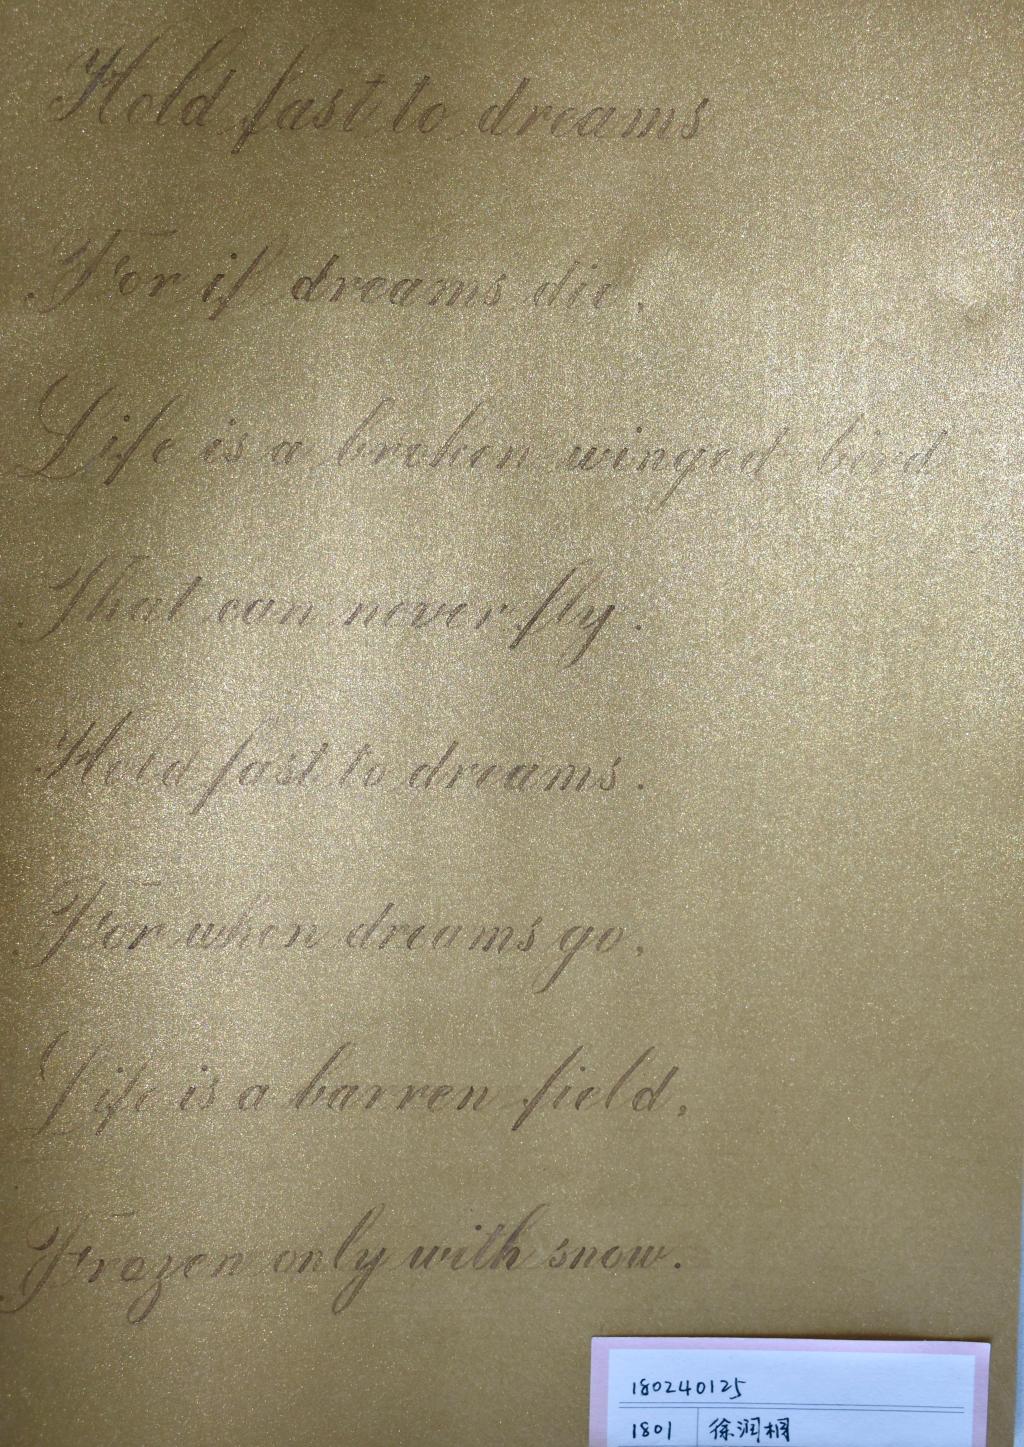 Hold fast to dreams
For if dreams die,
Life is a broken winged bird
That can never fly.
Hold fast to dreams.
For when dreams go,
Life is a barren field,
Frozen only with snow.
180240125
1801 徐润桐